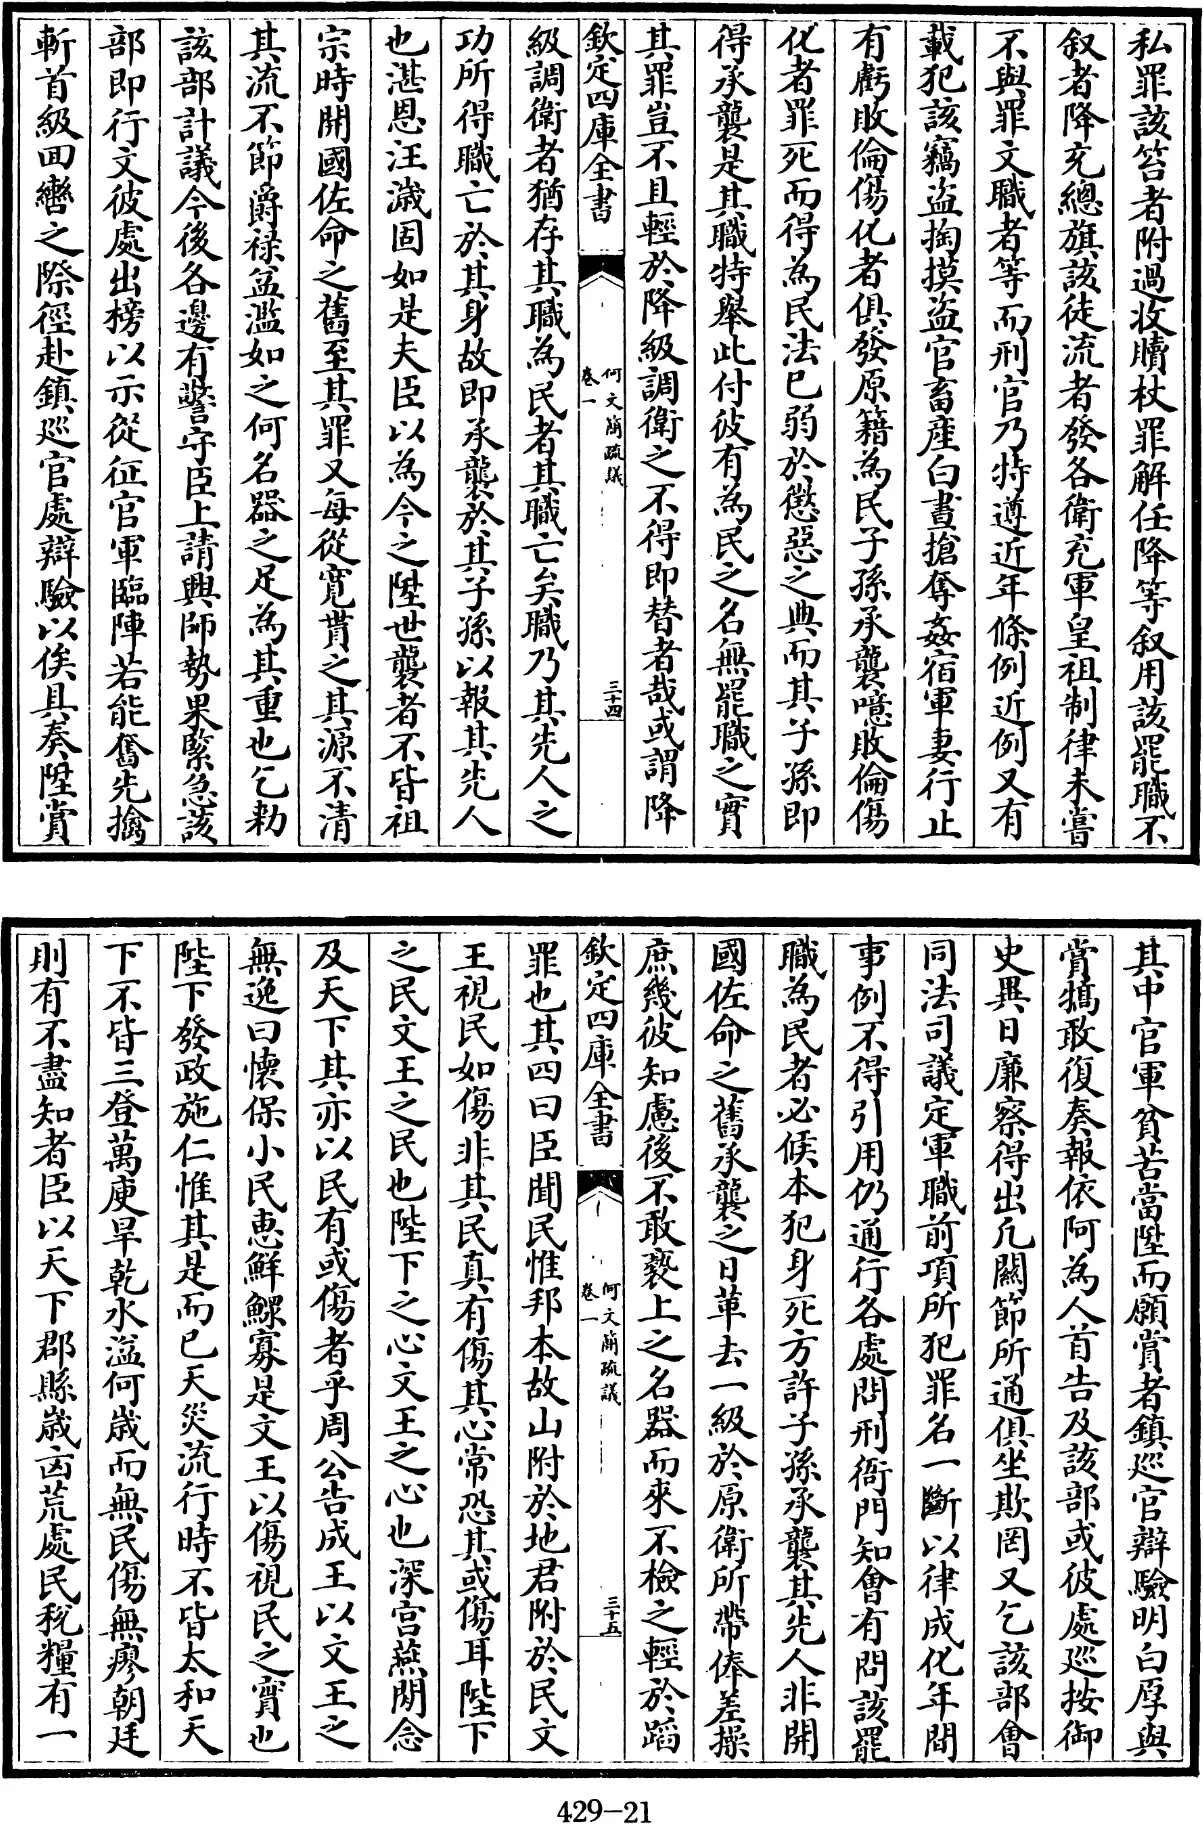 私罪該笞者附過收贖杖罪解任降等叙用該罷職不
叙者降充總旗該徒流者發各衛充軍皇祖制律未嘗
不與罪文職者等而刑官乃特遵近年條例近例又有
載犯該竊盗掏摸盗官畜産白晝搶奪姦宿軍妻行止
有虧敗倫傷化者俱發原籍為民子孫承襲噫敗倫傷
化者罪死而得為民法已弱於懲惡之典而其子孫即
得承襲是其職特舉此付彼有為民之名無罷職之實
其罪豈不且輕於降級調衛之不得即替者哉或謂降
欽定四庫全書
何文簡疏議
卷一
三十四
級調衛者猶存其職為民者其職亡矣職乃其先人之
功所得職亡於其身故即承襲於其子孫以報其先人
也湛恩汪濊固如是夫臣以為今之陞世襲者不皆祖
宗時開國佐命之舊至其罪又每從寛貰之其源不清
其流不節爵禄益濫如之何名器之足為其重也乞勅
該部計議今後各邊有警守臣上請興師勢果緊急該
部即行文彼處出榜以示從征官軍臨陣若能奮先擒
斬首級回轡之際徑赴鎮廵官處辯驗以俟具奏陞賞
其中官軍貧苦當陞而願賞者鎮廵官辯驗明白厚與
賞犒敢復奏報依阿為人首告及該部或彼處廵按御
史異日廉察得出凡關節所通俱坐欺罔又乞該部會
同法司議定軍職前項所犯罪名一斷以律成化年間
事例不得引用仍通行各處問刑衙門知會有問該罷
職為民者必候本犯身死方許子孫承襲其先人非開
國佐命之舊承襲之日革去一級於原衛所帶俸差操
庶幾彼知慮後不敢褻上之名器而來不檢之輕於蹈
欽定四庫全書
何文簡疏議
卷一
三十五
罪也其四曰臣聞民惟邦本故山附於地君附於民文
王視民如傷非其民真有傷其心常恐其或傷耳陛下
之民文王之民也陛下之心文王之心也深宫燕閒念
及天下其亦以民有或傷者乎周公告成王以文王之
無逸曰懐保小民恵鮮鰥寡是文王以傷視民之實也
陛下發政施仁惟其是而已天災流行時不皆太和天
下不皆三登萬庾旱乾水溢何歲而無民傷無瘳朝廷
則有不盡知者臣以天下郡縣歲凶荒處民税糧有一
429-21